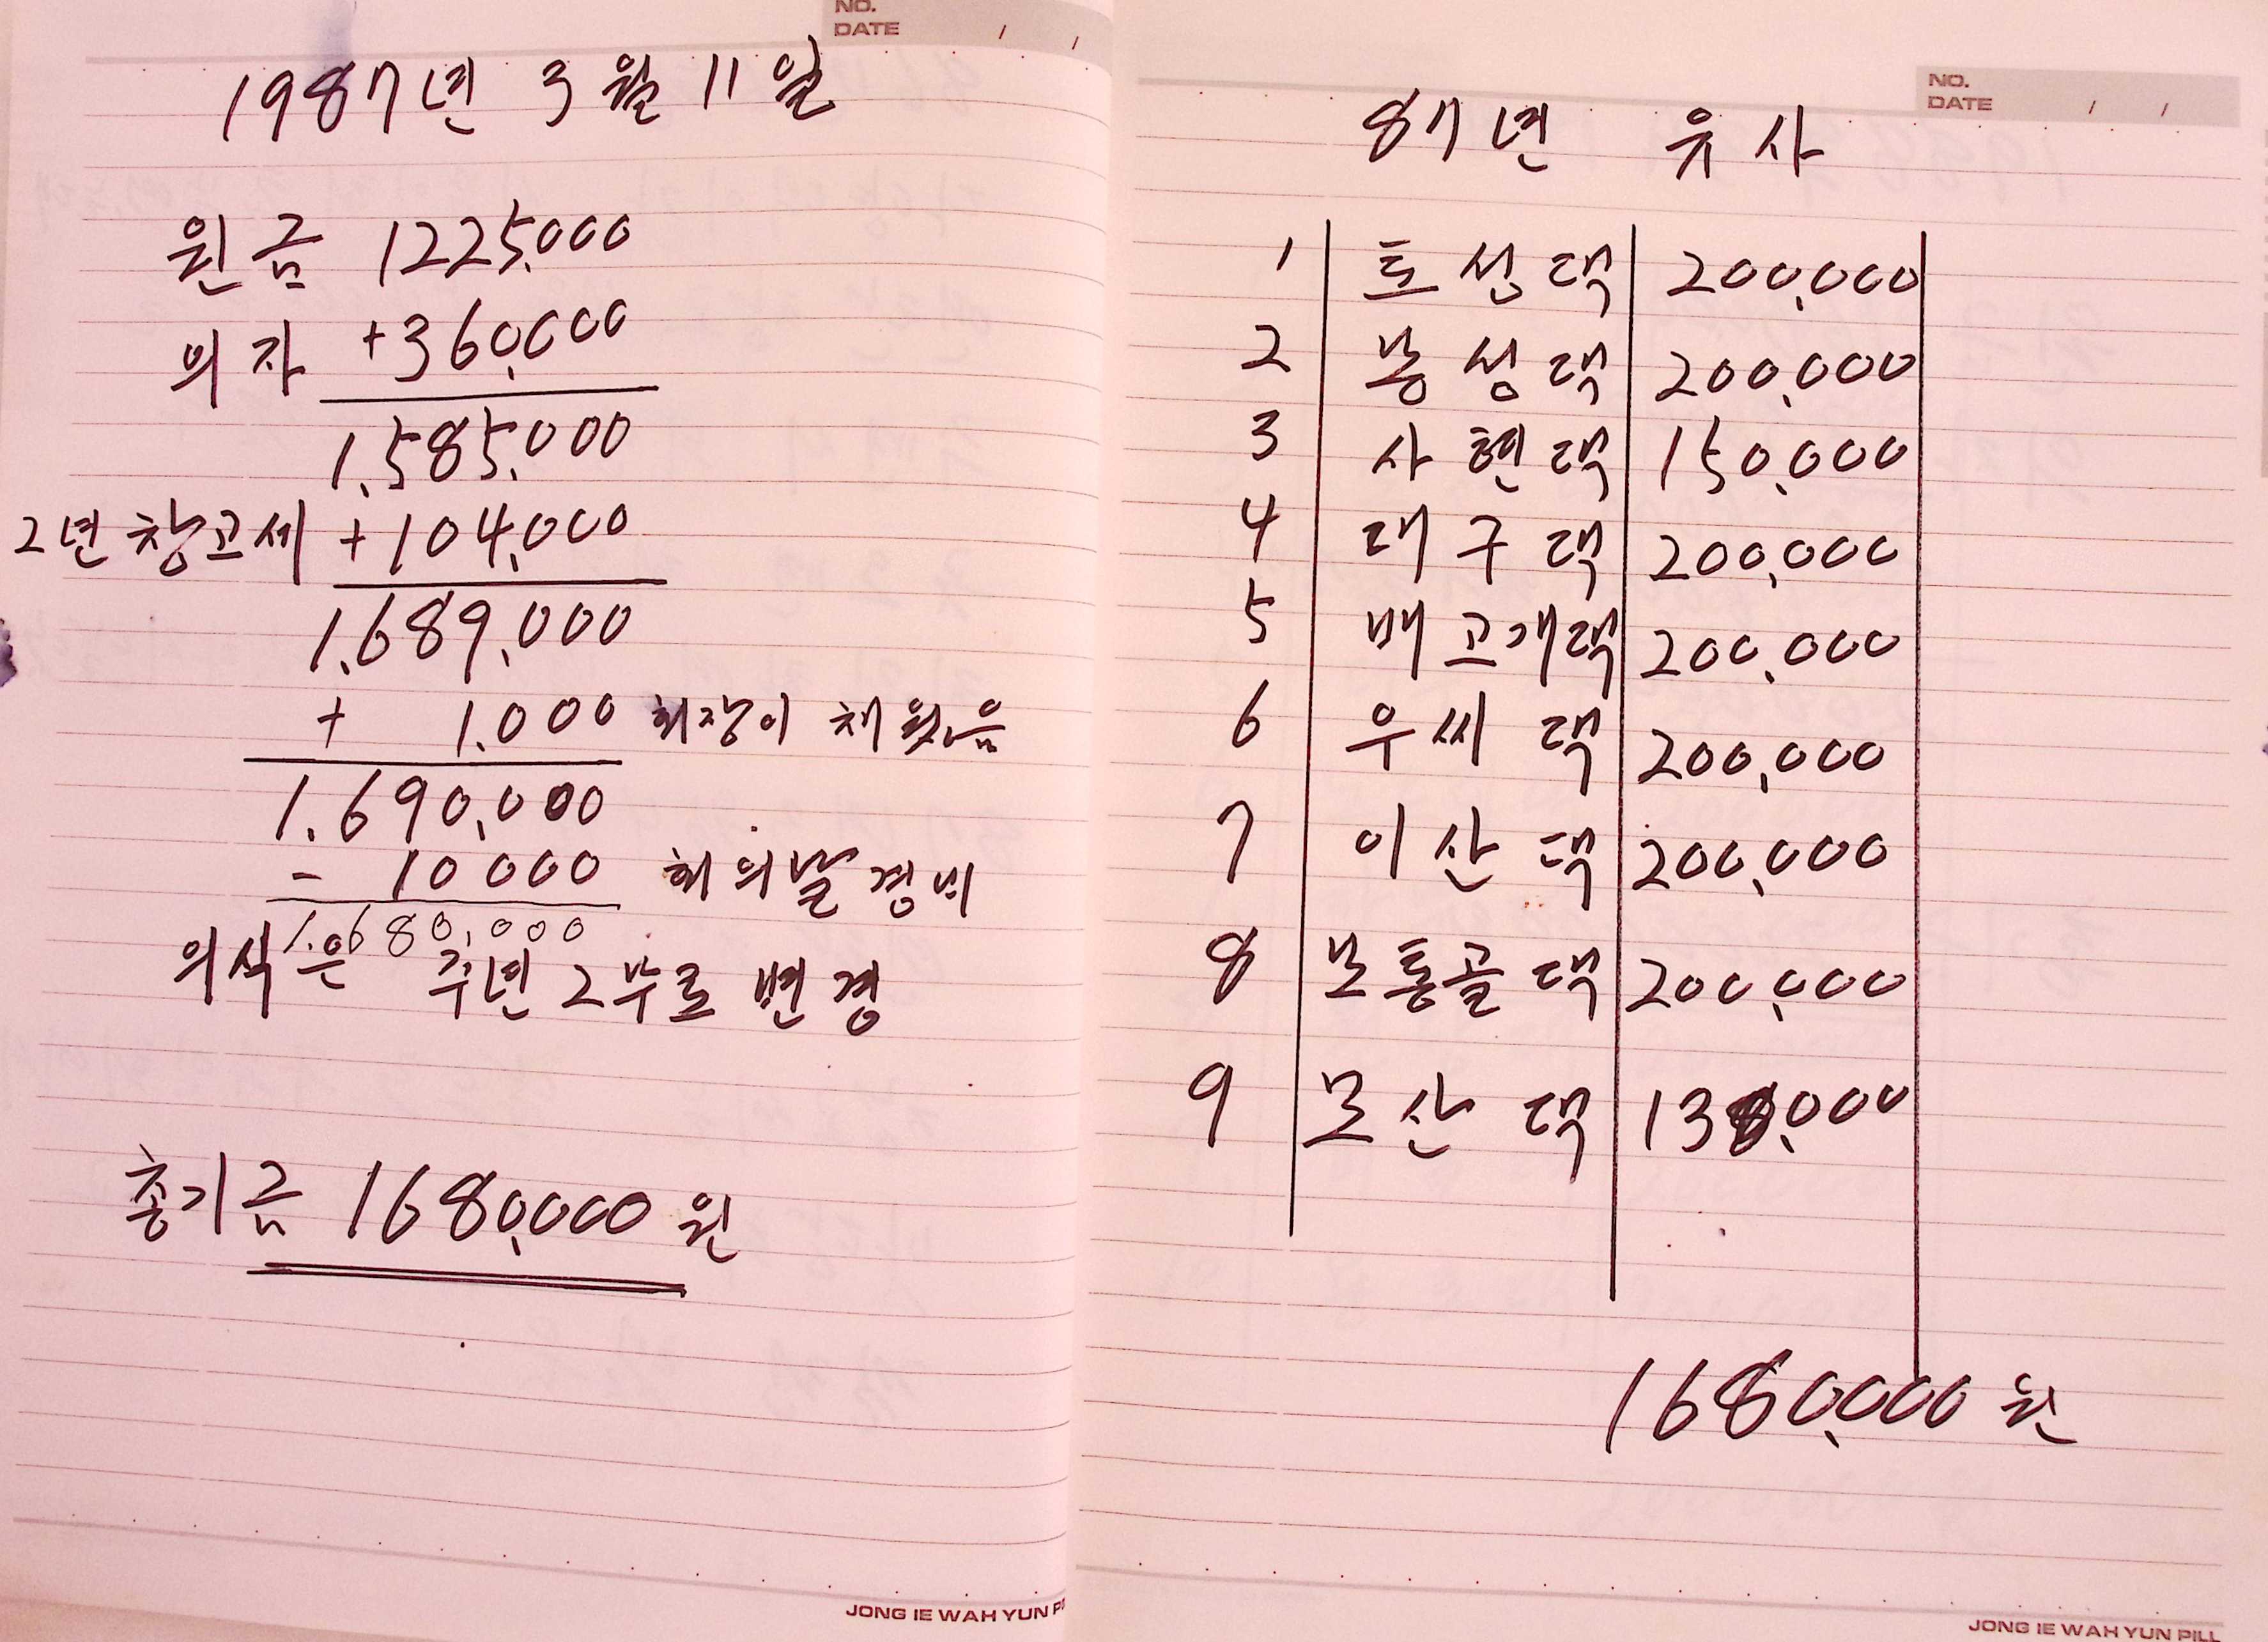 NO.
DATE / /
1987년 3월 11일
원금 1225,000
의자 +360,000
1.585,000
2년 창고세 +104,000
1.689,000
+ 1.000 회장이 채웠음
1.690,000
- 10000 회의날 경비
1.680,000
의식은 주년 2부로 변경
총기금 1680,000원
JONG IE WAH YUN P
NO.
DATE / /
87년 유사
1 토성댁 200,000
2 봉성댁 200,000
3 사현댁 150,000
4 대구댁 200,000
5 배고개댁 200,000
6 우씨댁 200,000
7 이산댁 200,000
8 보통골댁 200,000
9 모산댁 130,000
1680,000원
JONG IE WAH YUN PILL